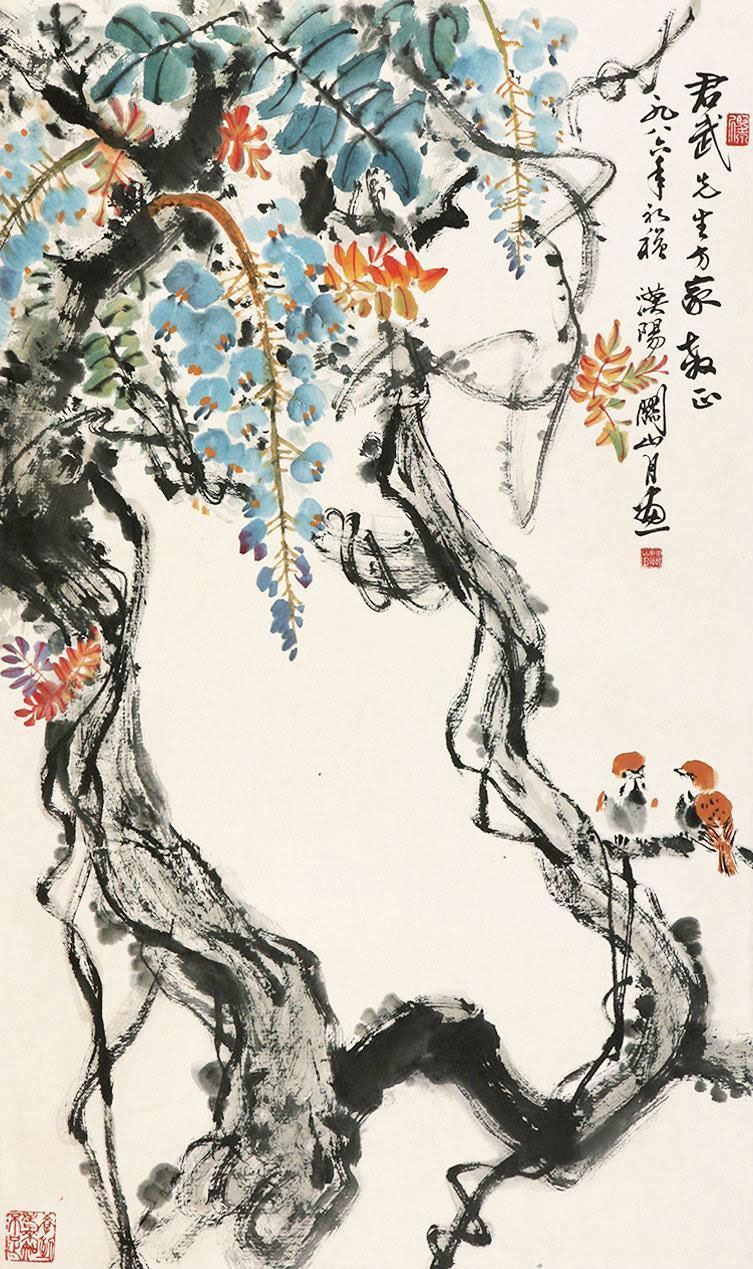 君武先生方家教正
一九八六年於穗 漠陽關山月畫